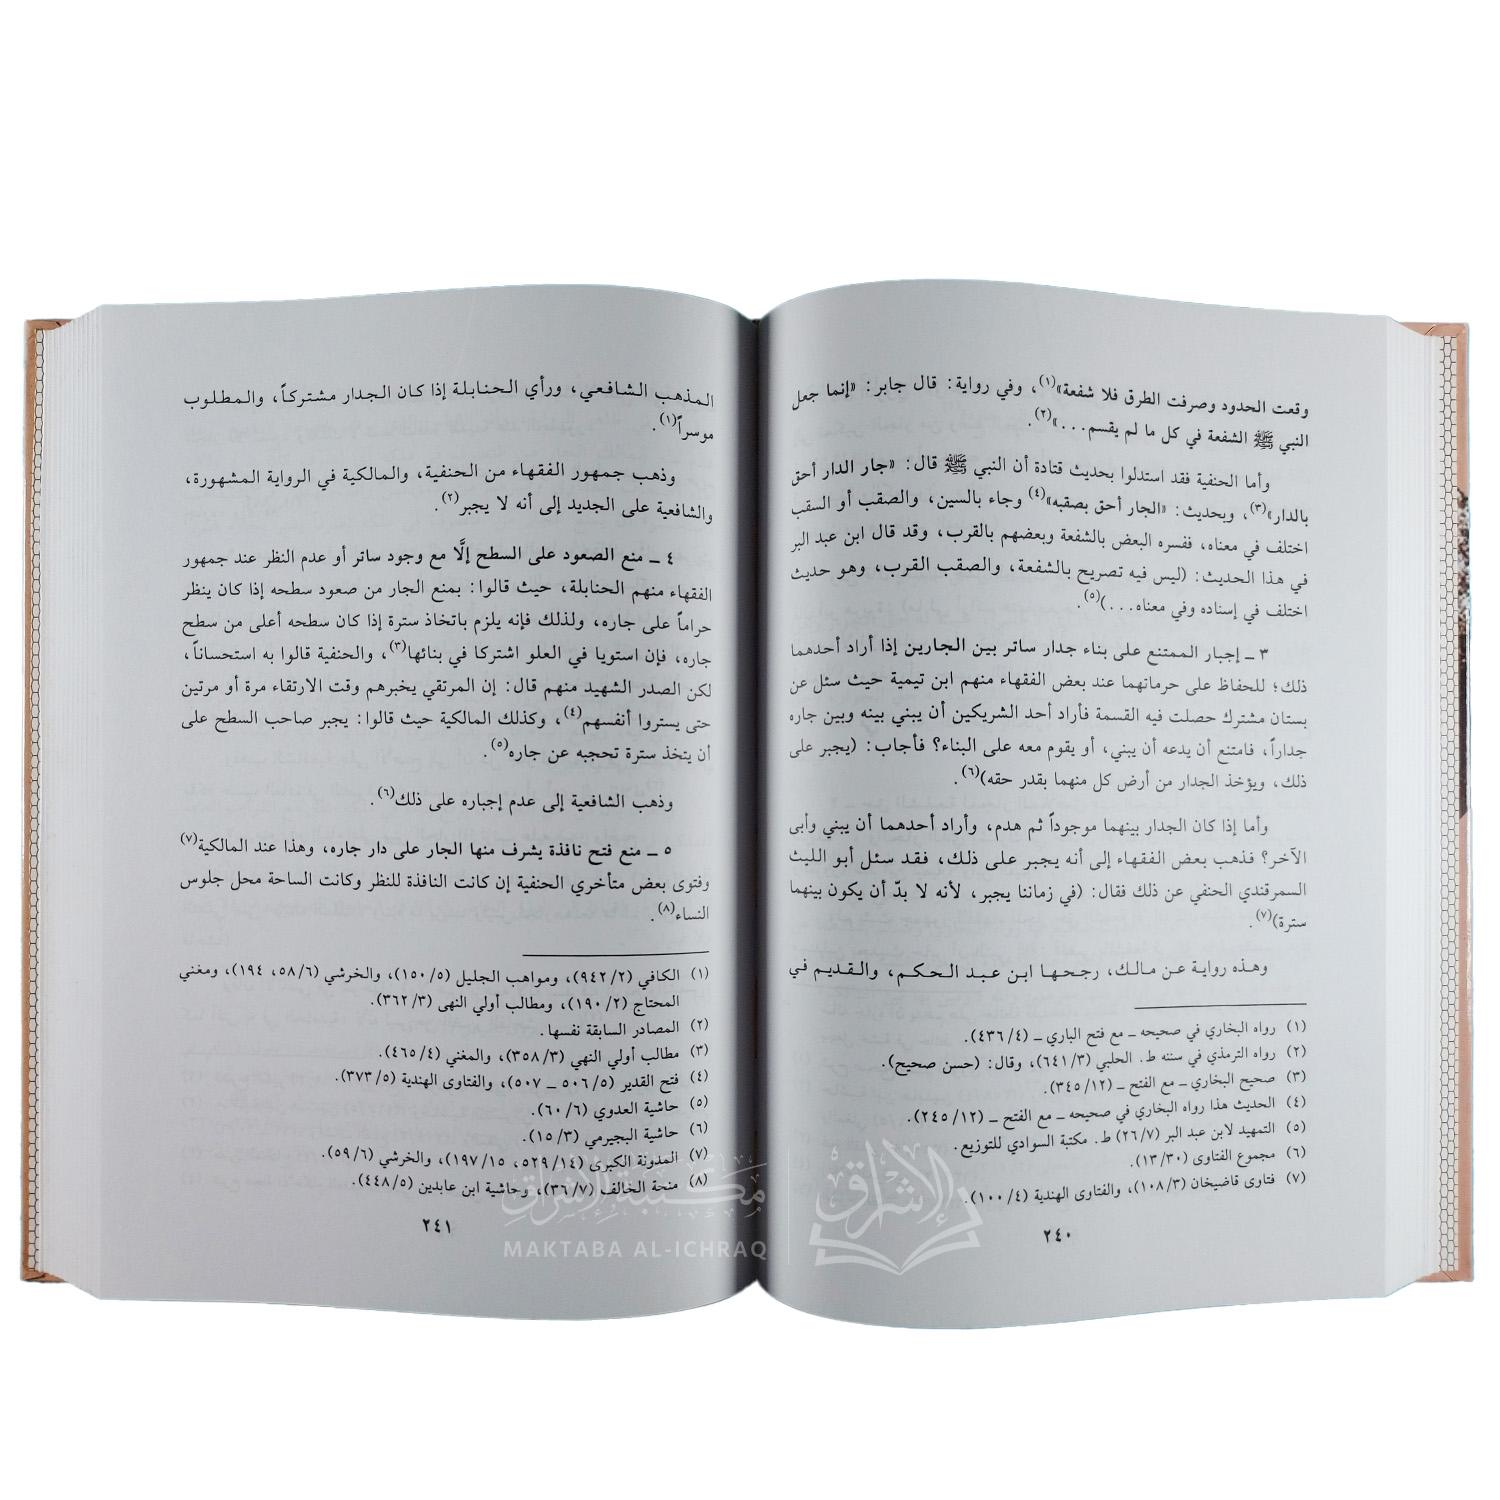 وقعت الحدود وصرفت الطرق فلا شفعة»(١)، وفي رواية: قال جابر: «إنما جعل
النبي ﷺ الشفعة في كل ما لم يقسم...»(٢).
وأما الحنفية فقد استدلوا بحديث قتادة أن النبي ﷺ قال: «جار الدار أحق
بالدار»(٣)، وبحديث: «الجار أحق بصقبه»(٤) وجاء بالسين، والصقب أو السقب
اختلف في معناه، ففسره البعض بالشفعة وبعضهم بالقرب، وقد قال ابن عبد البر
في هذا الحديث: (ليس فيه تصريح بالشفعة، والصقب القرب، وهو حديث
اختلف في إسناده وفي معناه...)(٥).
٣ ـ إجبار الممتنع على بناء جدار ساتر بين الجارين إذا أراد أحدهما
ذلك؛ للحفاظ على حرماتهما عند بعض الفقهاء منهم ابن تيمية حيث سئل عن
بستان مشترك حصلت فيه القسمة فأراد أحد الشريكين أن يبني بينه وبين جاره
جداراً، فامتنع أن يدعه أن يبني، أو يقوم معه على البناء؟ فأجاب: (يجبر على
ذلك، ويؤخذ الجدار من أرض كل منهما بقدر حقه)(٦).
وأما إذا كان الجدار بينهما موجوداً ثم هدم، وأراد أحدهما أن يبني وأبى
الآخر؟ فذهب بعض الفقهاء إلى أنه يجبر على ذلك، فقد سئل أبو الليث
السمرقندي الحنفي عن ذلك فقال: (في زماننا يجبر، لأنه لا بدّ أن يكون بينهما
سترة)(٧).
وهذه رواية عن مالك، رجحها ابن عبد الحكم، والقديم في
(١) رواه البخاري في صحيحه ـ مع فتح الباري ـ (٤/٤٣٦).
(٢) رواه الترمذي في سننه ط. الحلبي (٣/٦٤١)، وقال: (حسن صحيح).
(٣) صحيح البخاري ـ مع الفتح ـ (١٢/٣٤٥).
(٤) الحديث هذا رواه البخاري في صحيحه ـ مع الفتح ـ (١٢/٢٤٥).
(٥) التمهيد لابن عبد البر (٧/٢٦) ط. مكتبة السوادي للتوزيع.
(٦) مجموع الفتاوى (٣٠/١٣).
(٧) فتاوى قاضيخان (٣/١٠٨)، والفتاوى الهندية (٤/١٠٠).
٢٤٠
المذهب الشافعي، ورأي الحنابلة إذا كان الجدار مشتركاً، والمطلوب
موسراً(١).
وذهب جمهور الفقهاء من الحنفية، والمالكية في الرواية المشهورة،
والشافعية على الجديد إلى أنه لا يجبر(٢).
٤ ـ منع الصعود على السطح إلَّا مع وجود ساتر أو عدم النظر عند جمهور
الفقهاء منهم الحنابلة، حيث قالوا: بمنع الجار من صعود سطحه إذا كان ينظر
حراماً على جاره، ولذلك فإنه يلزم باتخاذ سترة إذا كان سطحه أعلى من سطح
جاره، فإن استويا في العلو اشتركا في بنائها(٣)، والحنفية قالوا به استحساناً،
لكن الصدر الشهيد منهم قال: إن المرتقي يخبرهم وقت الارتقاء مرة أو مرتين
حتى يستروا أنفسهم(٤)، وكذلك المالكية حيث قالوا: يجبر صاحب السطح على
أن يتخذ سترة تحجبه عن جاره(٥).
وذهب الشافعية إلى عدم إجباره على ذلك(٦).
٥ ـ منع فتح نافذة يشرف منها الجار على دار جاره، وهذا عند المالكية(٧)
وفتوى بعض متأخري الحنفية إن كانت النافذة للنظر وكانت الساحة محل جلوس
النساء(٨).
(١) الكافي (٢/٩٤٢)، ومواهب الجليل (٥/١٥٠)، والخرشي (٦/٥٨، ١٩٤)، ومغني
المحتاج (٢/١٩٠)، ومطالب أولي النهى (٣/٣٦٢).
(٢) المصادر السابقة نفسها.
(٣) مطالب أولي النهي (٣/٣٥٨)، والمغني (٤/٤٦٥).
(٤) فتح القدير (٥/٥٠٦ ـ ٥٠٧)، والفتاوى الهندية (٥/٣٧٣).
(٥) حاشية العدوي (٦/٦٠).
(٦) حاشية البجيرمي (٣/١٥).
(٧) المدونة الكبرى (١٤/٥٢٩، ١٥/١٩٧)، والخرشي (٦/٥٩).
(٨) منحة الخالف (٧/٣٦)، وحاشية ابن عابدين (٥/٤٤٨).
٢٤١
مكتبة الإشراق
MAKTABA AL-ICHRAQ
الإشراق